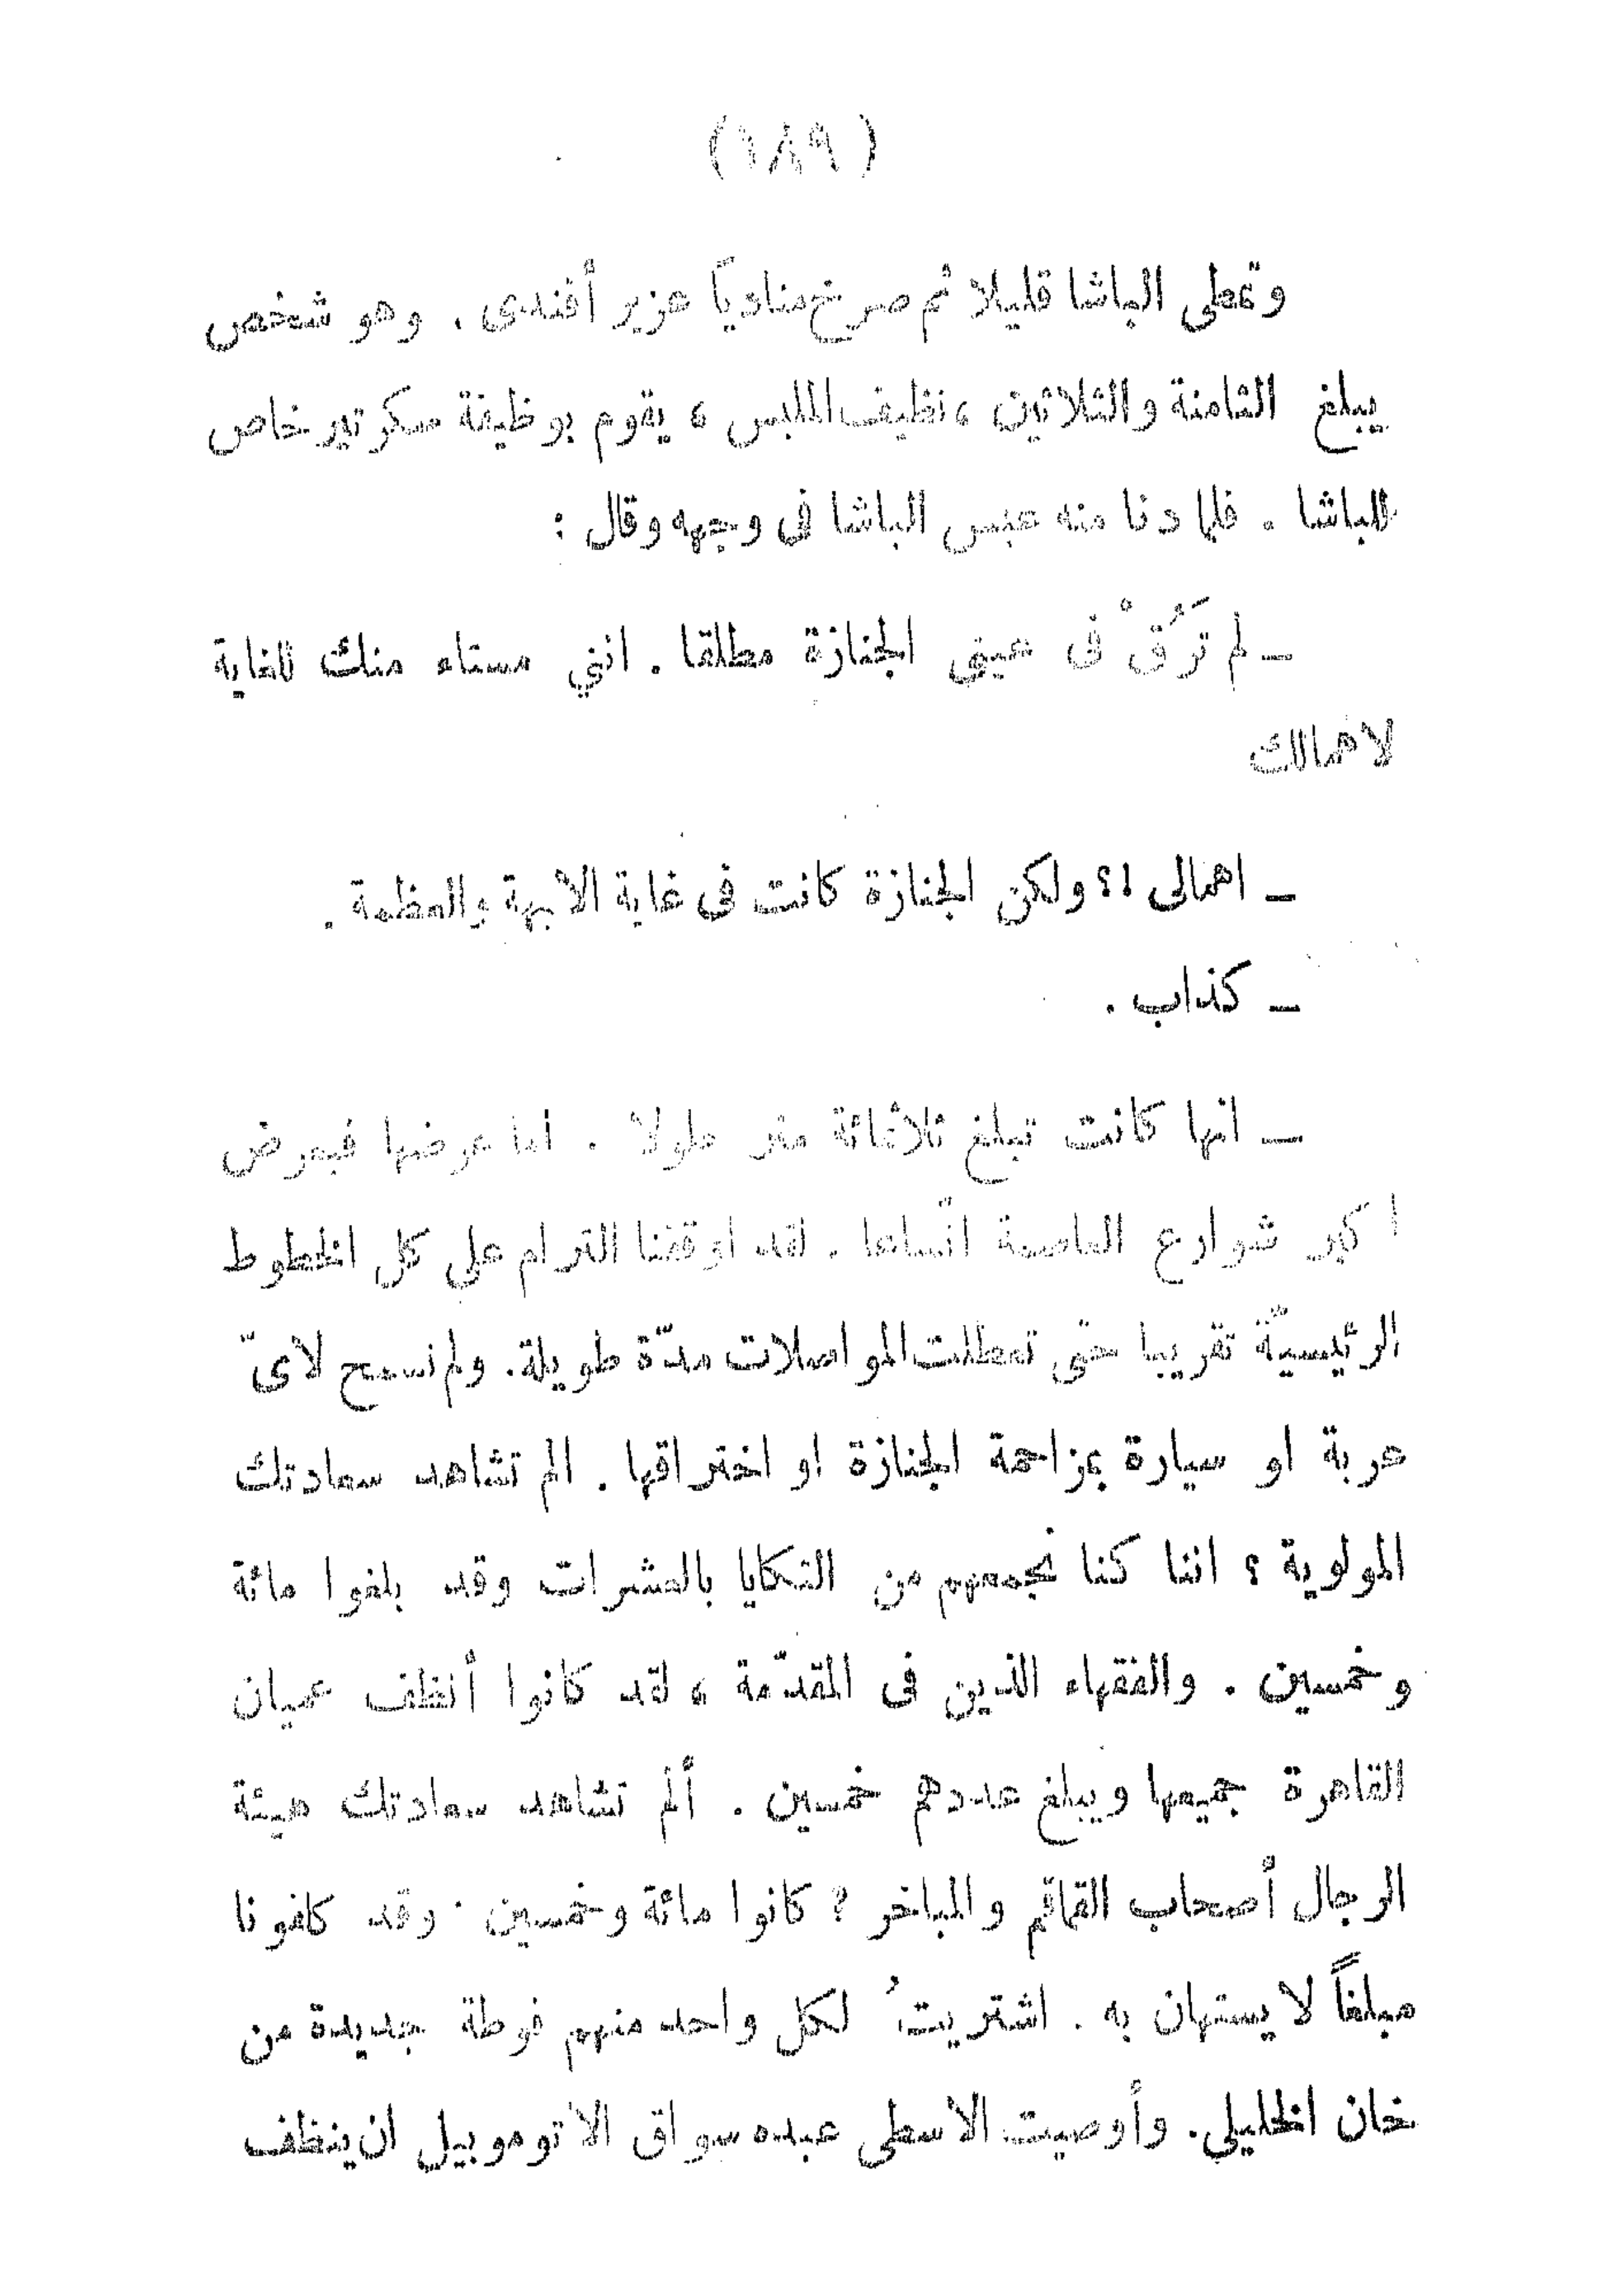 (١٨٩)
وتمطى الباشا قليلا ثم صرخ مناديًا عزيز أفندى . وهو شخص
يبلغ الثامنة والثلاثين ، نظيف الملبس ، يقوم بوظيفة سكرتير خاص
للباشا . فلما دنا منه عبس الباشا فى وجهه وقال :
ــ لم تَرُقْ فى عينى الجنازة مطلقا . انني مستاء منك للغاية
لاهمالك
ــ اهمالى !؟ ولكن الجنازة كانت فى غاية الابهة والعظمة .
ــ كذاب .
ــ انها كانت تبلغ ثلاثمائة متر طولا . اما عرضها فبعرض
اكبر شوارع العاصمة اتّساعا . لقد اوقفنا الترام على كل الخطوط
الرئيسيّة تقريبا حتى تعطلت المواصلات مدّة طويلة. ولم نسمح لاىّ
عربة او سيارة بمزاحمة الجنازة او اختراقها . الم تشاهد سعادتك
المولوية ؟ اننا كنا نجمعهم من التكايا بالعشرات وقد بلغوا مائة
وخمسين . والفقهاء الذين فى المقدّمة ، لقد كانوا أنظف عميان
القاهرة جميعها ويبلغ عددهم خمسين . ألم تشاهد سعادتك هيئة
الرجال أصحاب القماقم والمباخر ؟ كانوا مائة وخمسين . وقد كلفونا
مبلغاً لا يستهان به . اشتريتُ لكل واحد منهم فوطة جديدة من
خان الخليلى. وأوصيت الاسطى عبده سواق الاتوموبيل ان ينظف